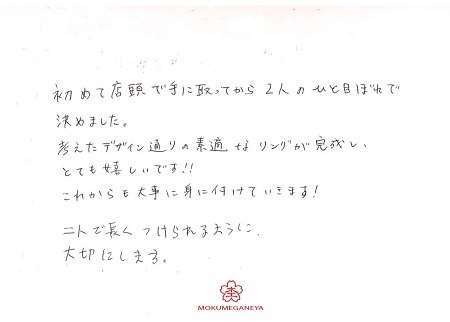 初めて店頭で手に取ってから2人のひと目ぼれで
決めました。
考えたデザイン通りの素適なリングが完成し、
とても嬉しいです!!
これからも大事に身に付けていきます!
二人で長くつけられるように、
大切にします。
MOKUMEGANEYA